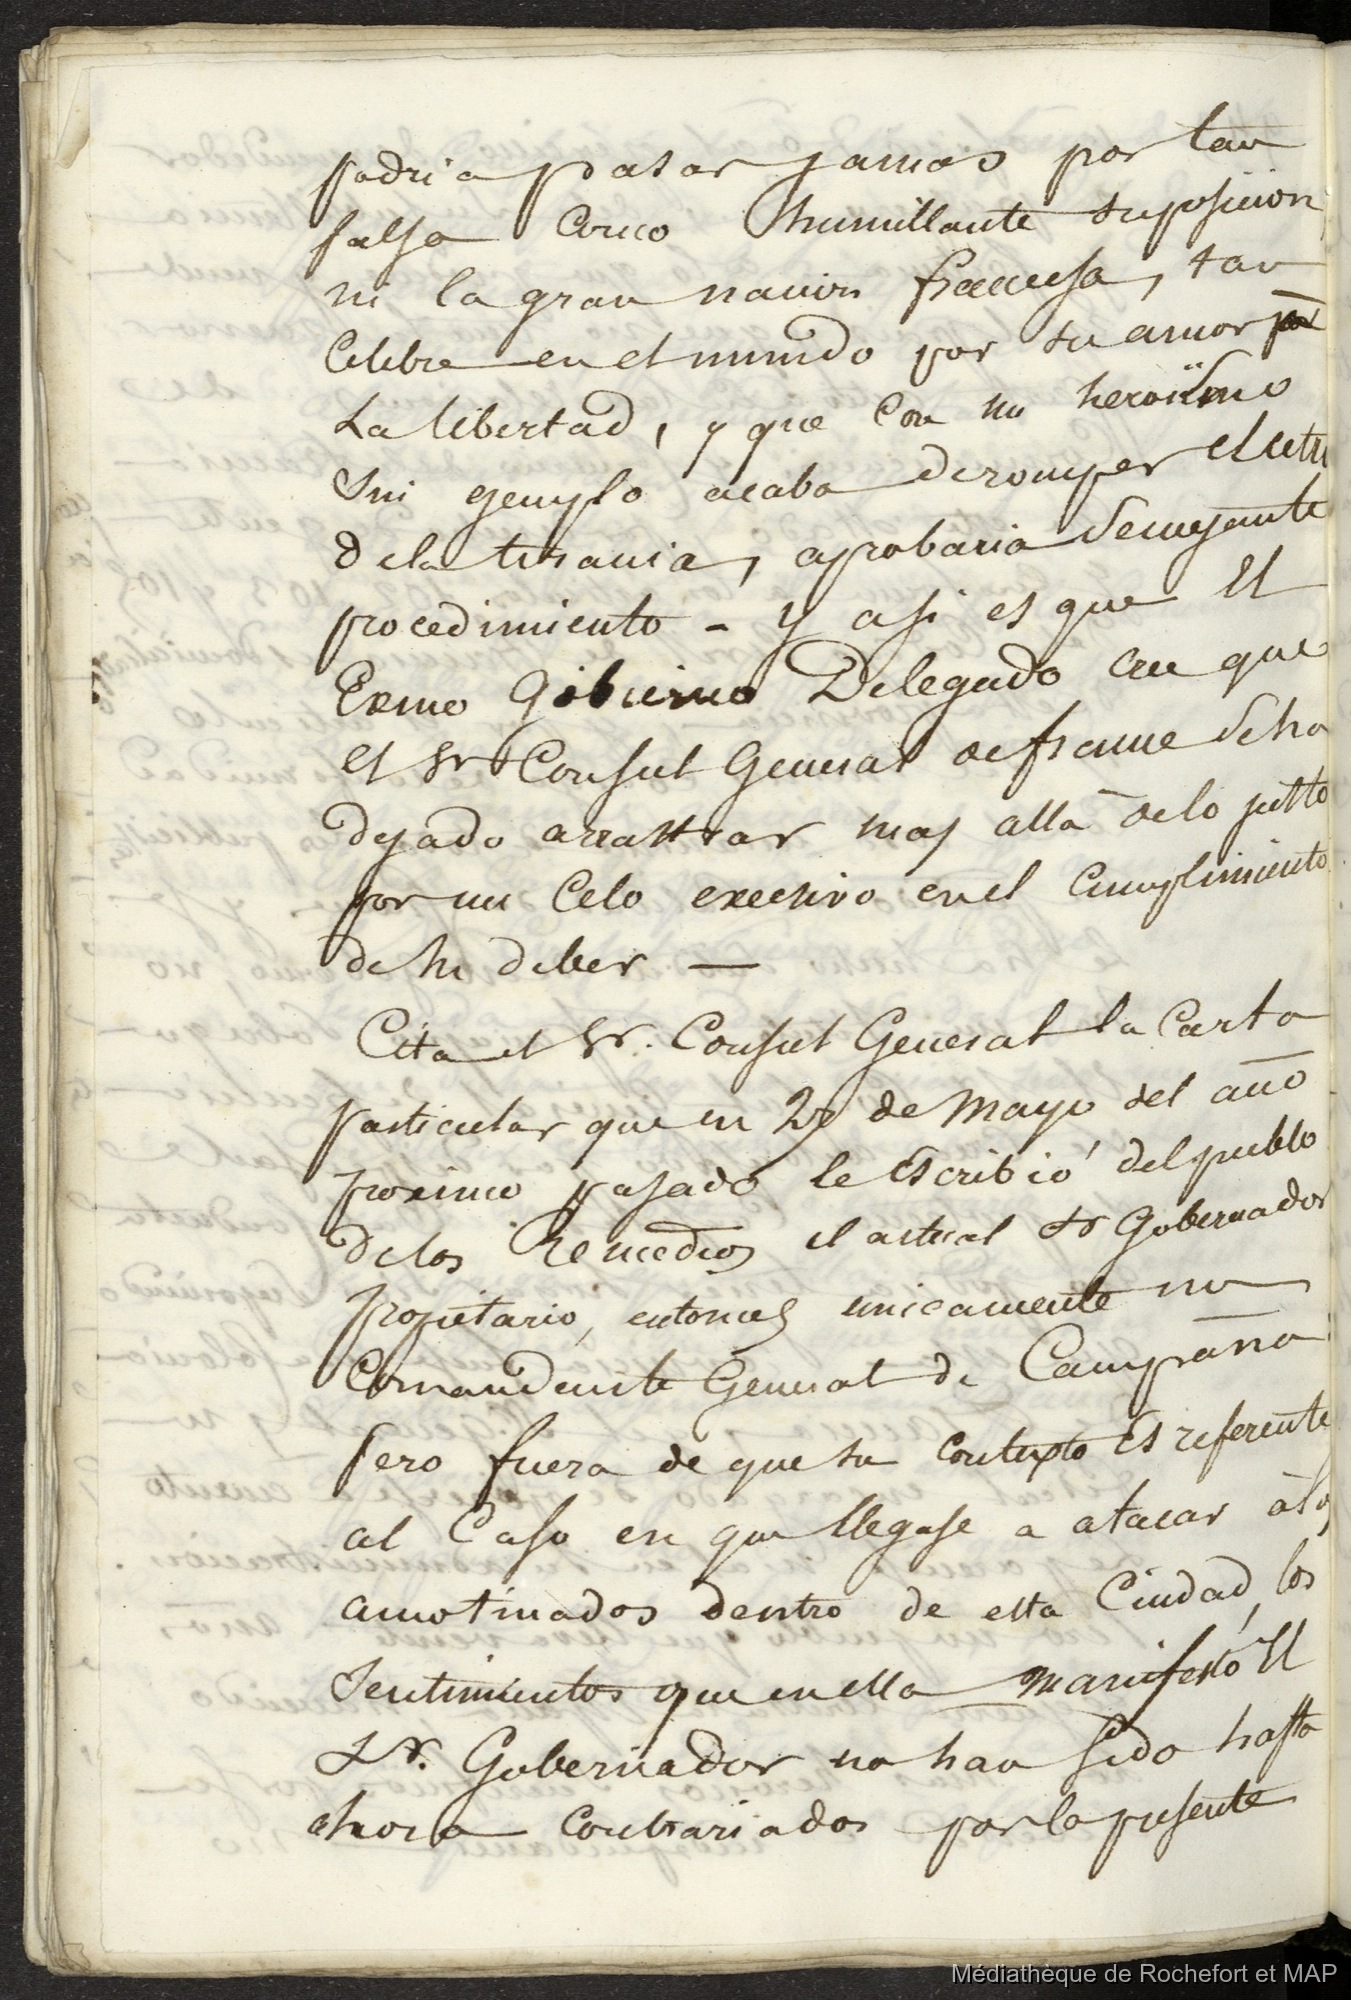 podria pasar jamas por tan
falsa Como humillante suposicion
ni la gran nacion francesa, tan
Celebre en el mundo por su amor por
La libertad, y que Con un heroismo
Sin egemplo acaba de romper el cetro
de la tirania, aprobaria Semejante
procedimiento - Y asi es que El
Exmo Gobierno Delegado cree que
el Sr Consul General de france Se ha
dejado arrastrar mas allá de lo justo
por un Celo excesivo en el Cumplimiento
de su deber —
Cita el Sr. Consul General la Carta
particular que en 27 de Mayo del año
proximo pasado le Escribió del pueblo
de los Remedios el actual Sr Gobernador
propietario, entonces unicamente un
Comandante General de Campaña
pero fuera de que su contexto Es referente
al Caso en que llegase a atacar á los
amotinados dentro de esta Ciudad, los
Sentimientos que en ella manifestó El
Sr. Gobernador no han Sido hasta
ahora Contrariados por la presente
Médiathèque de Rochefort et MAP